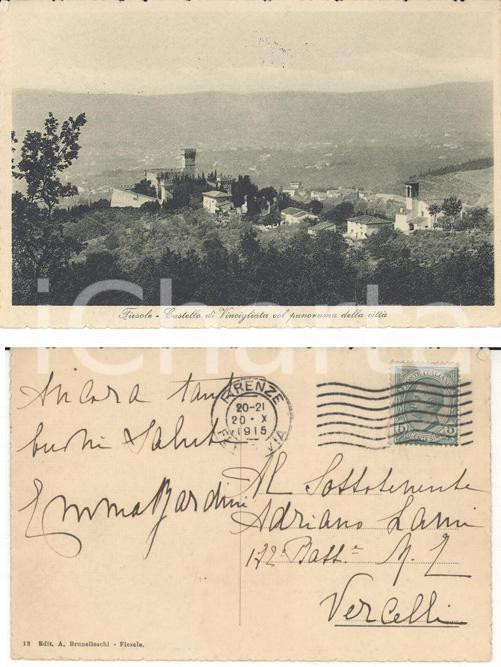 Fiesole - Castello di Vincigliata col panorama della città
iCharta
Ancora tanti
buoni Saluti
Emma Bardini
FIRENZE
20-21
20 · X
1915
Al Sottotenente
Adriano Lami
172° Batt.e M. T
Vercelli
12 Edit. A. Brunelleschi - Fiesole.